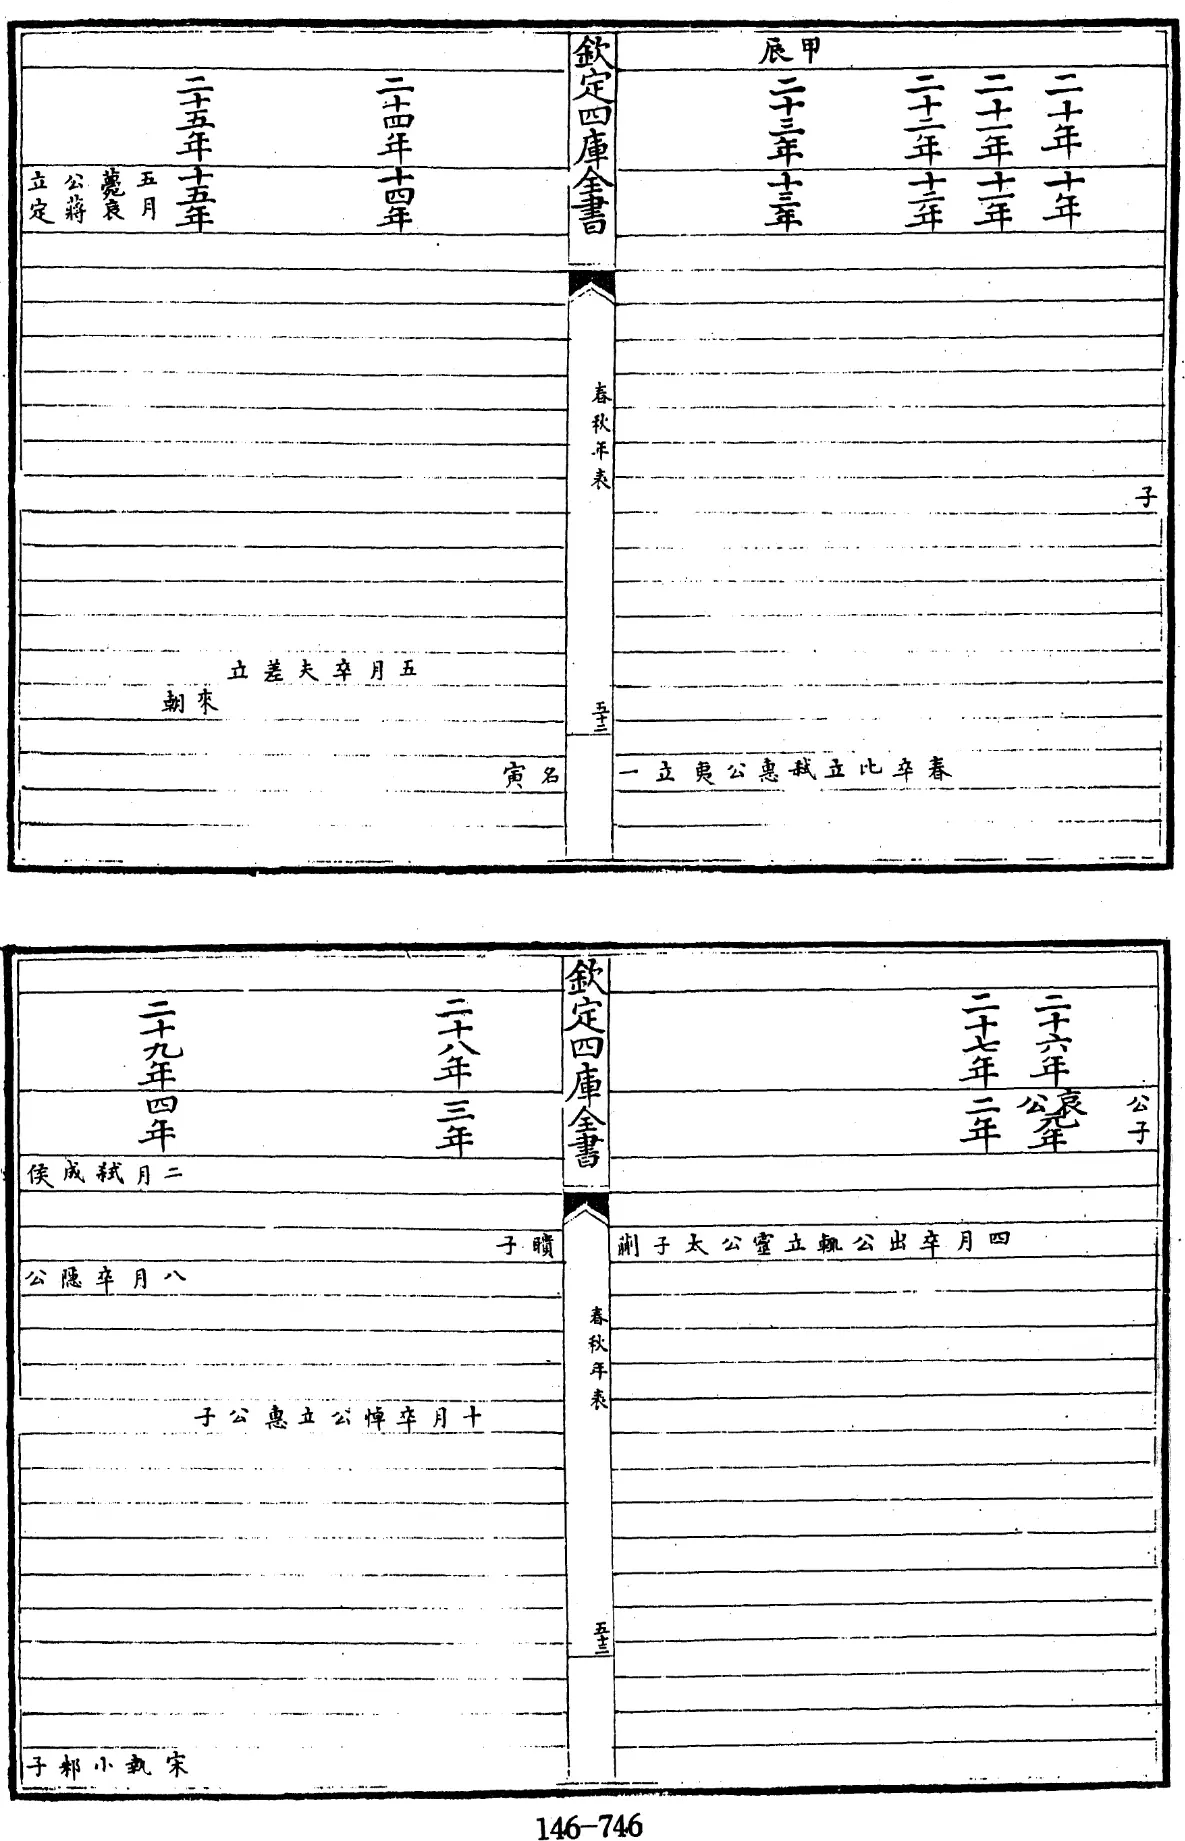 甲辰
二十年
二十一年
二十二年
二十三年
十年
十一年
十二年
十三年
子
春卒比立弑惠公夷立一
欽定四庫全書
春秋年表
五十二
二十四年
二十五年
十四年
十五年
五月
薨哀
公蔣
立定
五月卒夫差立
來朝
名寅
二十六年
二十七年
公子
哀公元年
二年
四月卒出公輒立靈公太子蒯
欽定四庫全書
春秋年表
五十三
二十八年
二十九年
三年
四年
二月弑成侯
聵子
八月卒隱公
十月卒悼公立惠公子
宋執小邾子
146-746